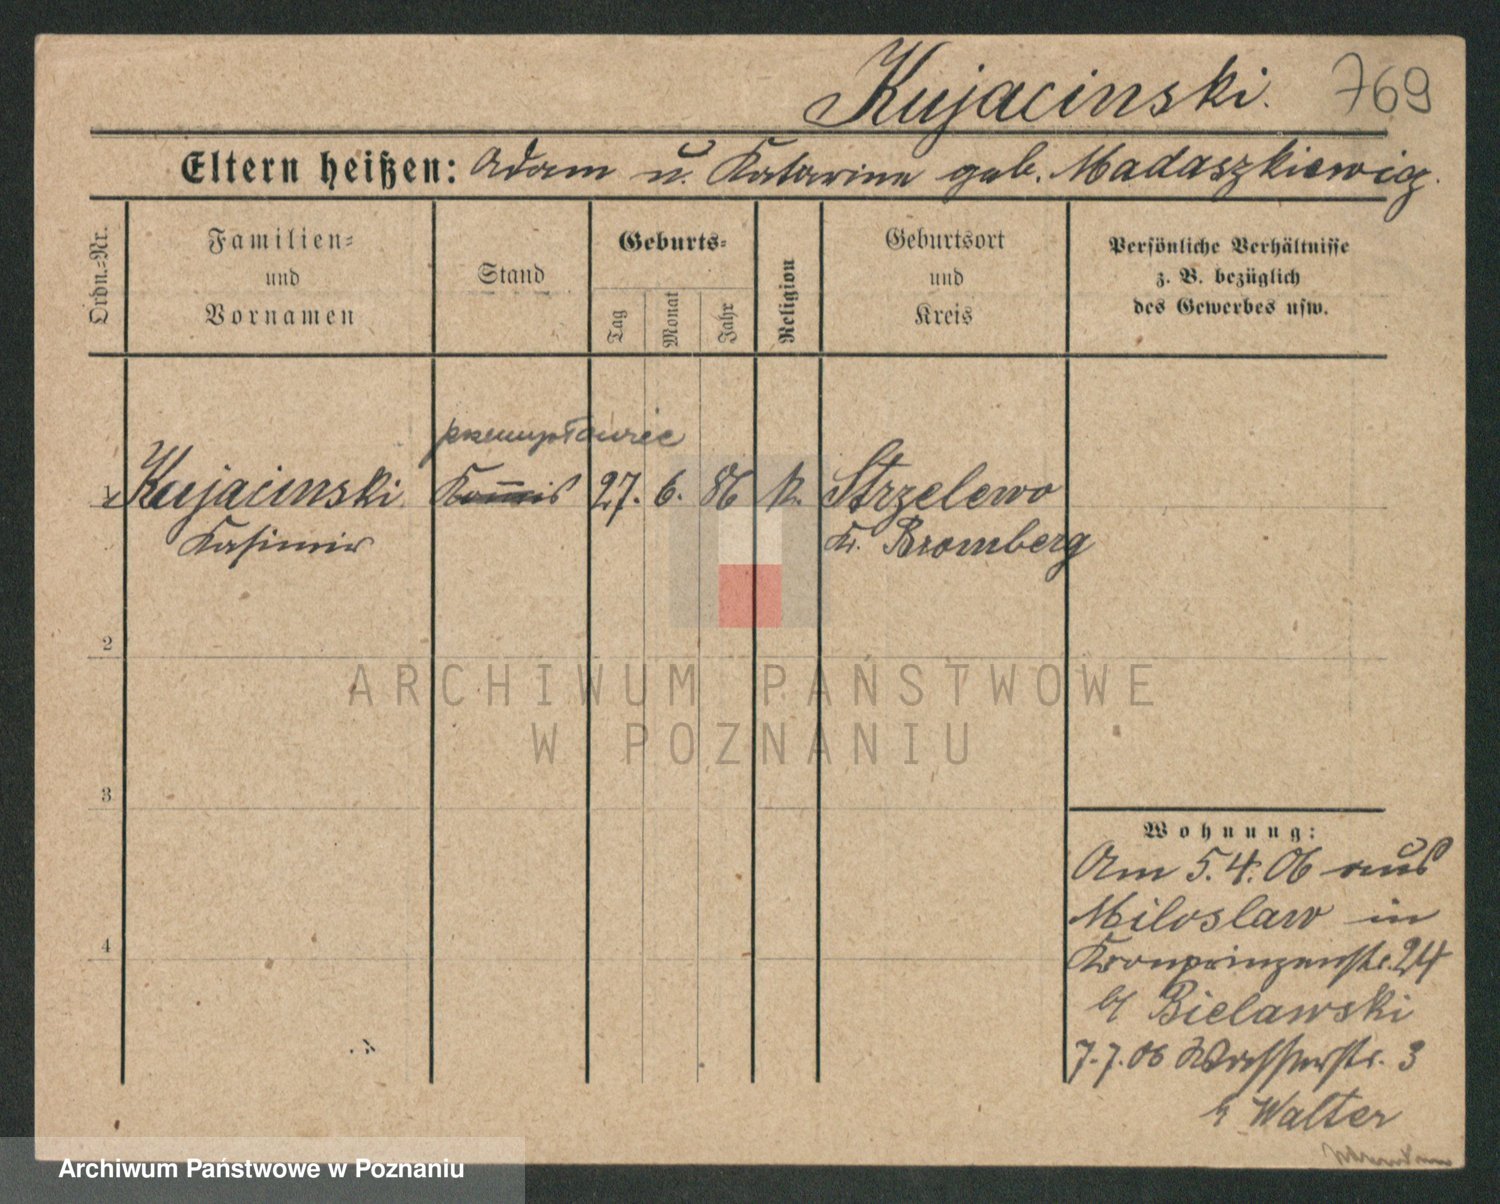 Kujacinski. 769
Eltern heißen: Adam u. Katarina geb. Madaszkiewicz.
Ordn.=Nr.
Familien=
und
Vornamen
Stand
Geburts=
Tag
Monat
Jahr
Religion
Geburtsort
und
Kreis
Persönliche Verhältnisse
z. B. bezüglich
des Gewerbes usw.
1 Kujacinski Kommis 27. 6. 86 k. Strzelewo
Kasimir Kr. Bromberg
2
3
4
ARCHIWUM PAŃSTWOWE
W POZNANIU
Wohnung:
Am 5.4.06 aus
Miloslaw in
Kronprinzenstr. 24
b/ Bielawski
7.7.06 Wasserstr. 3
Walter
Archiwum Państwowe w Poznaniu